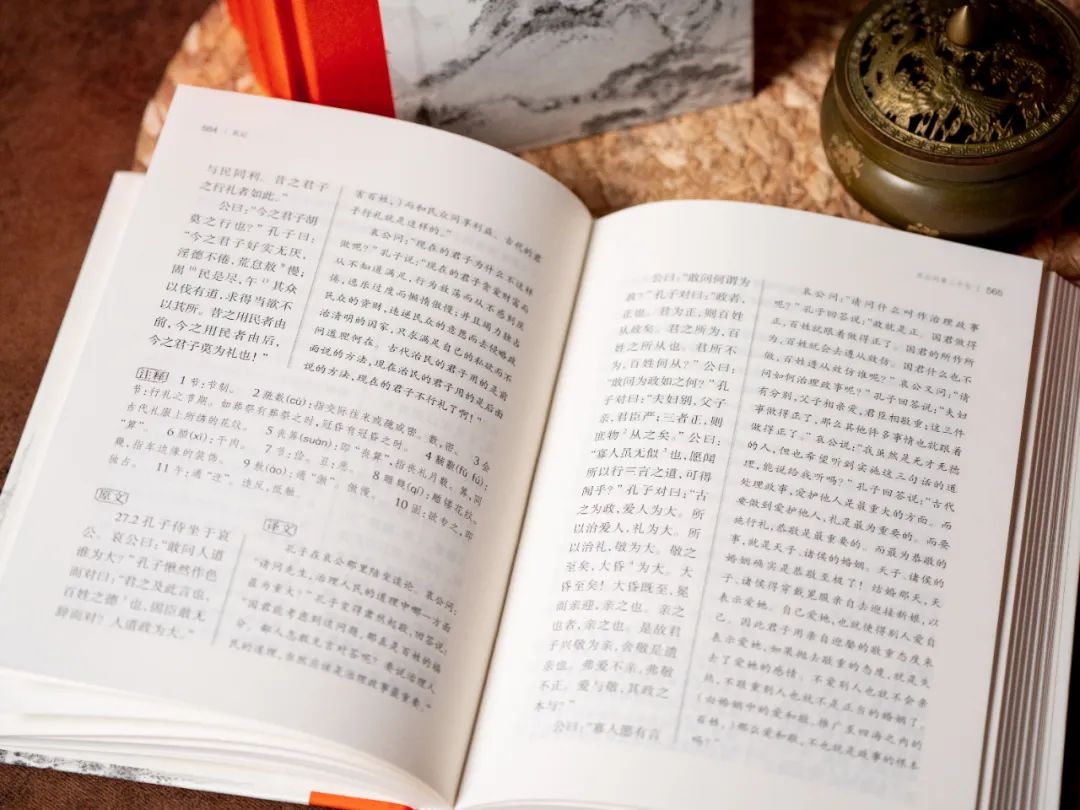 564 | 礼记
与民同利。昔之君子
之行礼者如此。”
公曰：“今之君子胡
莫之行也？”孔子曰：
“今之君子好实无厌，
淫德不倦，荒怠敖⁹慢；
固¹⁰民是尽，午¹¹其众
以伐有道，求得当欲不
以其所。昔之用民者由
前，今之用民者由后，
今之君子莫为礼也！”
害百姓。）而和民众同享利益。古代的君
子行礼就是这样的。”
哀公问：“现在的君子为什么不这样
做呢？”孔子说：“现在的君子贪爱财富而
从不知道满足，行为放荡而从不感到疲
倦，逸乐过度而懒惰傲慢；并且竭力独占
民众的资财，违逆民众的意愿而去侵略政
治清明的国家，只求满足自己的私欲而不
问道理何在。古代治民的君子用的是前
面说的方法，现在治民的君子用的是后面
说的方法，现在的君子不行礼了啊！”
注释
1 节：节制。 2 疏数(cù)：指交际往来或疏或密。数，密。 3 会
节：行礼之节期。如葬祭有葬祭之时，冠昏有冠昏之时。 4 黼黻(fǔ fú)：
古代礼服上所绣的花纹。 5 丧筭(suàn)：即“丧算”，指丧礼月数。筭，同
“算”。 6 腊(xī)：干肉。 7 节：俭。丑：恶。 8 雕几(qí)：雕镂花纹。
几，指车边缘的装饰。 9 敖(ào)：通“傲”。傲慢。 10 固：欲专之，即
独占。 11 午：通“迕”。违反，抵触。
原文
27.2 孔子侍坐于哀
公。哀公曰：“敢问人道
谁为大？”孔子愀然作色
而对曰：“君之及此言也，
百姓之德¹也，固臣敢无
辞而对？人道政为大。”
译文
孔子在哀公那里陪坐谈论。哀公问：
“请问先生，治理人民的道理中哪一方面
最为重大？”孔子变得肃然起敬，回答说：
“国君能考虑到这问题，那真是百姓的福
分。鄙人怎敢无言对答呢？要说治理人
民的道理，当然应该是治理政事最重要。”
哀公问第二十七 565
公曰：“敢问何谓为
政？”孔子对曰：“政者，
正也。君为正，则百姓
从政矣。君之所为，百
姓之所从也。君所不
为，百姓何从？”公曰：
“敢问为政如之何？”孔
子对曰：“夫妇别，父子
亲，君臣严；三者正，则
庶物²从之矣。”公曰：
“寡人虽无似³也，愿闻
所以行三言之道，可得
闻乎？”孔子对曰：“古
之为政，爱人为大。所
以治爱人，礼为大。所
以治礼，敬为大。敬之
至矣，大昏⁴为大。大
昏至矣！大昏既至，冕
而亲迎，亲之也。亲之
也者，亲之也。是故君
子兴敬为亲，舍敬是遗
亲也。弗爱不亲，弗敬
不正。爱与敬，其政之
本与？”
公曰：“寡人愿有言
哀公问：“请问什么叫作治理政事
呢？”孔子回答说：“政就是正。国君做得
正，百姓就跟着做得正了。国君的所作所
为，百姓就会去遵从效仿。国君什么也不
做，百姓遵从效仿谁呢？”哀公又问：“请
问如何治理政事呢？”孔子回答说：“夫妇
有分别，父子相亲爱，君臣相敬重；这三件
事做得正了，那么其他许多事情也就跟着
做得正了。”哀公说：“我虽然是无才无德
的人，但也希望听到实施这三句话的道
理，能说给我听吗？”孔子回答说：“古代
处理政事，爱护他人是最重大的方面。而
要做到爱护他人，礼是最为重要的。而要
施行礼，恭敬是最重要的。而最为恭敬的
事，就是天子、诸侯的婚姻。天子、诸侯的
婚姻确实是恭敬至极了！结婚那天，天
子、诸侯得穿戴冕服亲自去迎接新娘，以
表示爱她。自己爱她，也就使得别人爱自
己。因此君子用亲自迎娶的敬重态度来
表示爱她，如果抛去敬重的态度，就是失
去了爱她的感情。不爱别人也就不会亲
热，不敬重别人也就不是正当的婚姻了。
（由婚姻中的爱和敬，推广至四海之内的
百姓，）那么爱和敬，不也就是政事的根本
吗？”